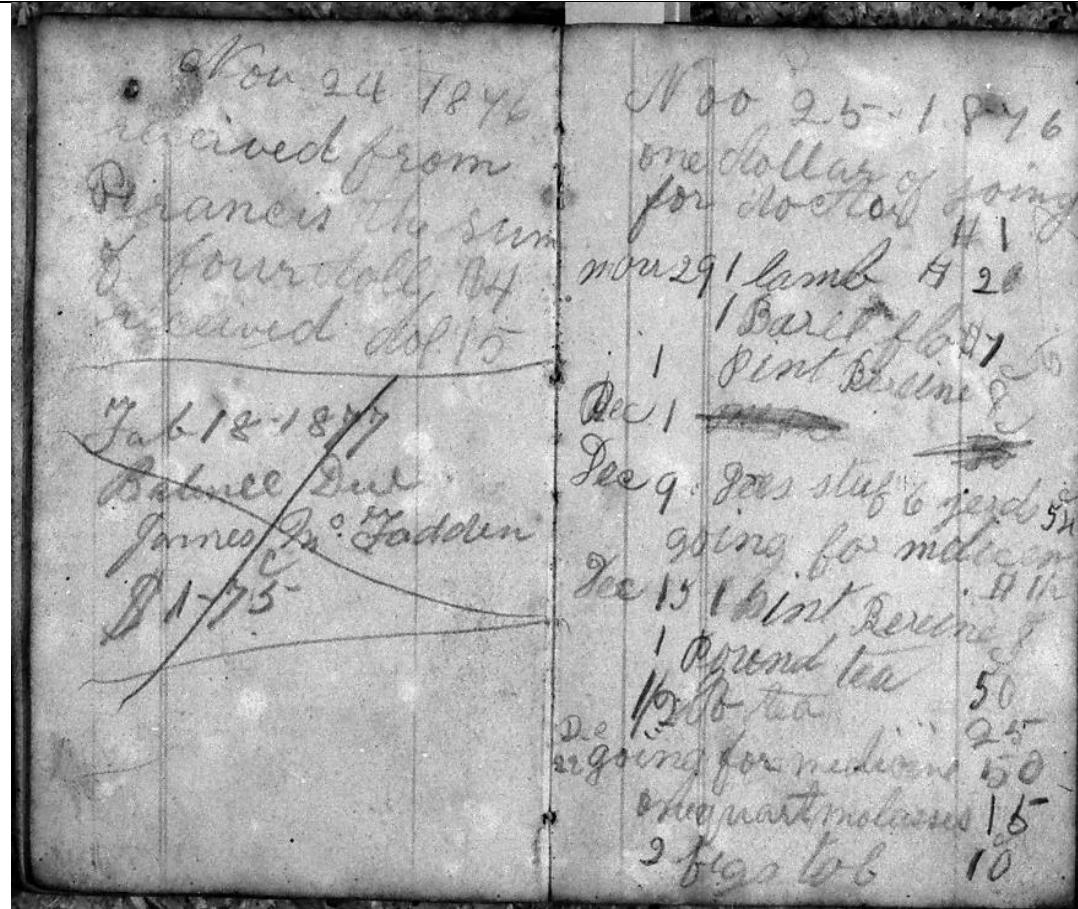 Nov 24 1876
received from
Francis the sum
of four doll $4
received dol 15
Feb 18-1877
Balnce Due
James Mc Fadden
$1-75
Nov 25-1876
one dollar of going
for doctor
$1
nov 29 1 lamb $2
1 Barel flo $7
1 pint Bereine 8
Dec 1
Dec 9 stuf 6 yerd 54
going for
Dec 15 1 pint Bereine 8
1 Pound tea 50
1/2 lb tea 25
Dec 22 going for medicine 50
one quart molasses 15
2 figs tob 10